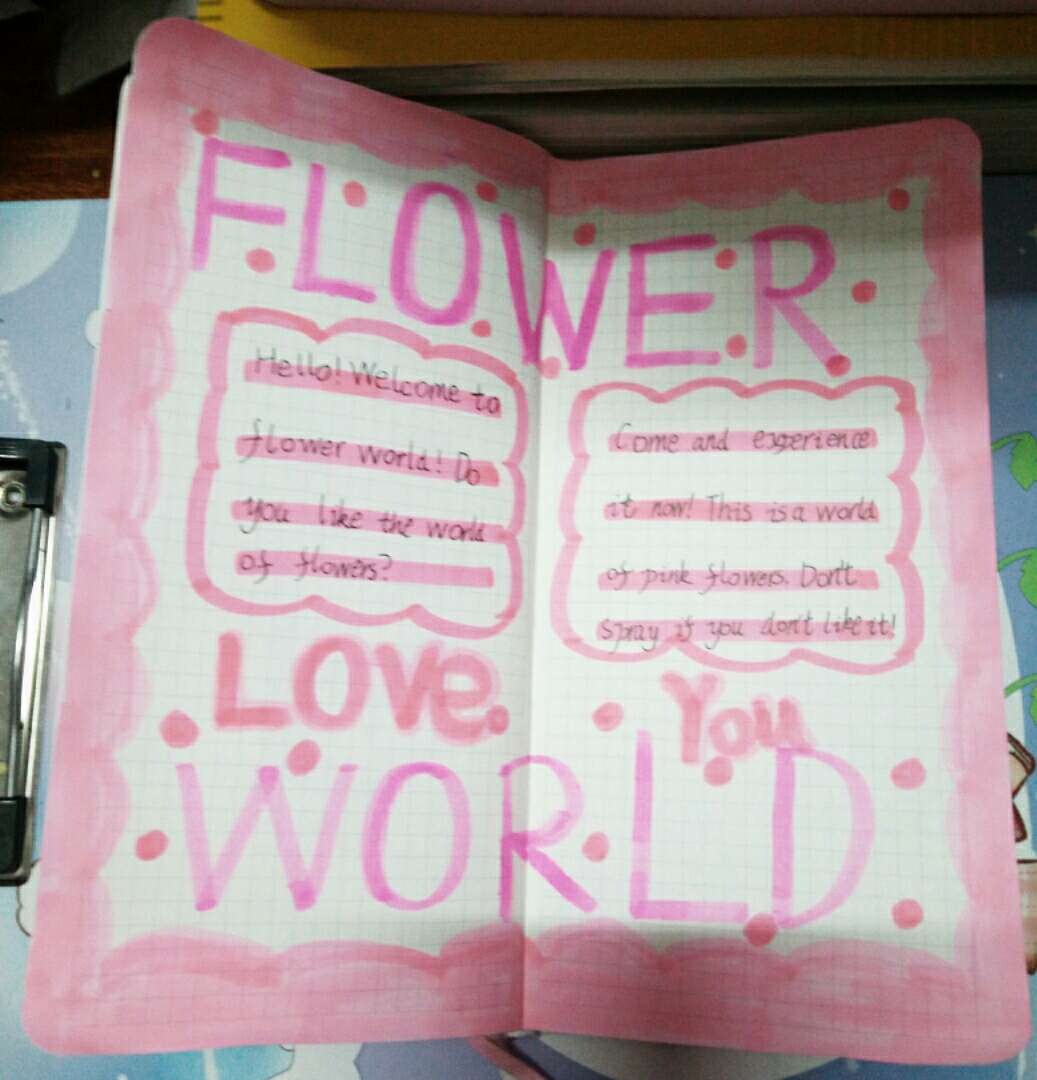 FLOWER
Hello! Welcome to
flower world! Do
you like the world
of flowers?
Come and experience
it now! This is a world
of pink flowers. Don't
spray if you don't like it!
LOVe.
You
WORLD